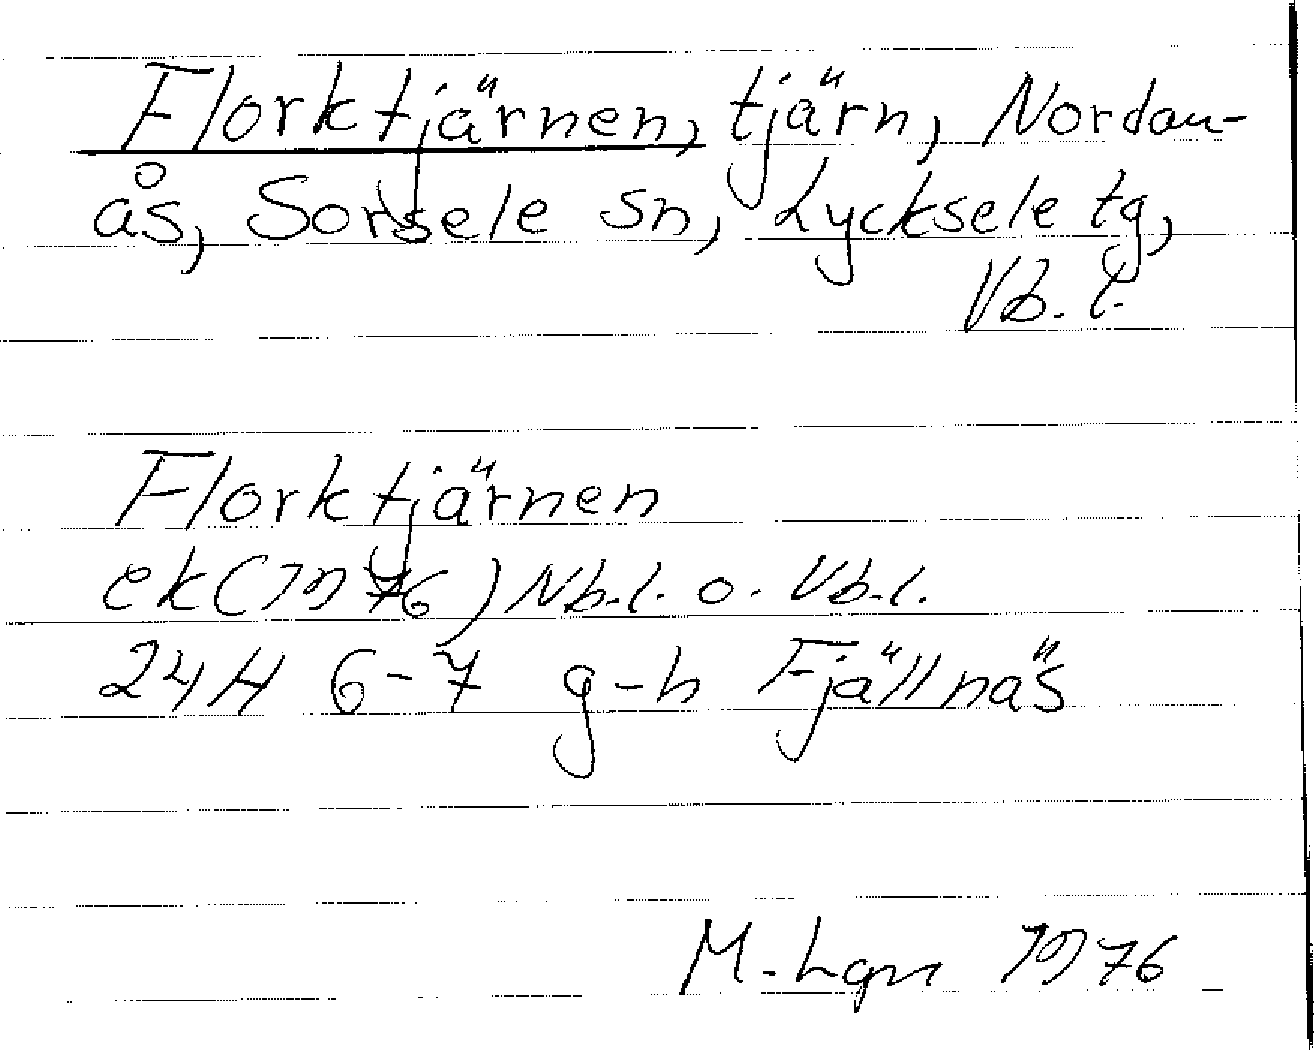 Florktjärnen, tjärn, Nordan-
ås, Sorsele sn, Lycksele tg,
Vb. l.
Florktjärnen
ek (1976) Nb.l. o. Vb.l.
24H 6-7 g-h Fjällnäs
M. Lgn 1976